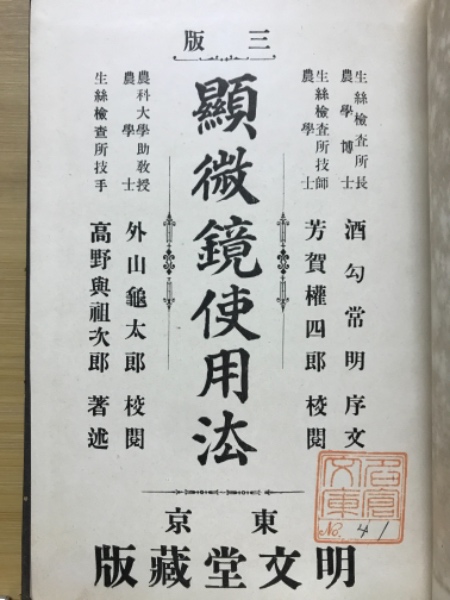 版三
生絲檢査所長
農學博士
酒勾常明序文
生絲檢査所技師
農學士
芳賀權四郎校閱
顯微鏡使用法
農科大學助敎授
農學士
外山龜太郎校閱
生絲檢查所技手
高野與祖次郎著述
京東
版藏堂文明
No. 41